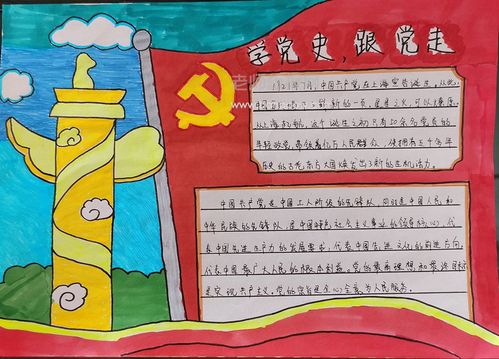 学党史，跟党走
1921年7月，中国共产党在上海宣告诞生，从此，
中国
上海
年轻政党，带领着亿万人民群众，使拥有五千年
历史的古老东方大国焕发出了新的生机活力。
中国共产党是中国工人阶级的先锋队，同时是中国人民和
中华民族的先锋队，是中国特色社会主义事业的领导核心，代
表中国先进生产力的发展要求，代表中国先进文化的前进方向，
代表中国最广大人民的根本利益。党的最高理想和最终目标
是实现共产主义。党的宗旨是全心全意为人民服务。